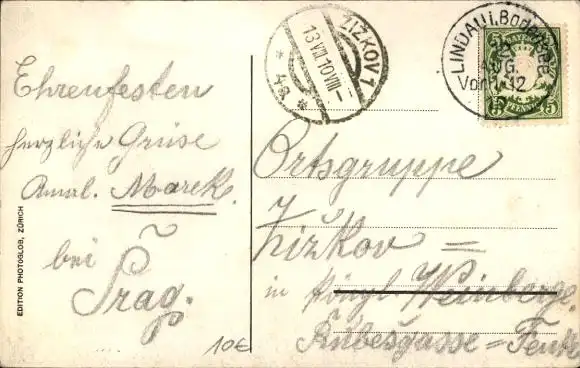 Ehrenfesten
herzliche Grüse
Amal. Marek.
bei
Prag.
EDITION PHOTOGLOB, ZÜRICH
10€
ŽIŽKOV 1
13 VIII 10 VIII-
* 4a *
LINDAU i. Bodensee
AUG.
Vorm. 12
BAYERN
5 PFENNIG 5
Ortsgruppe
Žižkov =
in Königl Weinberge
=